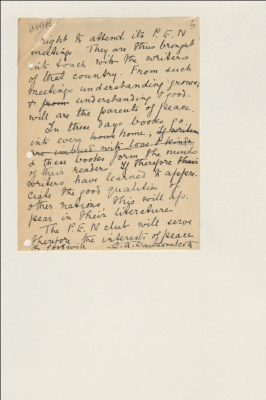 right to attend its P.E.N
meetings. They are thus brought
into touch with the writers
of that country. From such
meetings understanding grows,
& from understanding & good-
will are the parents of peace.
In these days books go
into every home, if written
are imbued with love &
& these books form the minds
of their readers. If therefore their
writers have learned to appre-
ciate the good qualities of
other nations this will ap-
pear in their literature
The P.E.N club will serve
therefore the interests of peace
& goodwill C. A. Dawson Scott